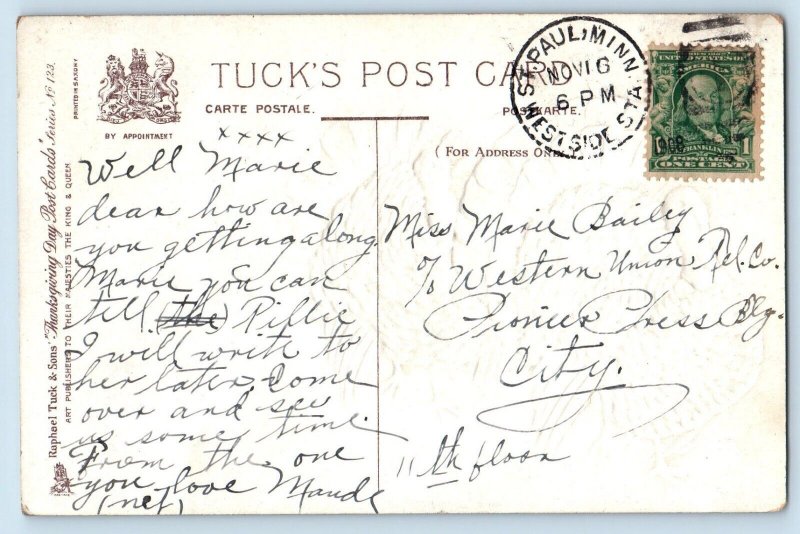 TUCK'S POST CARD
CARTE POSTALE.
POSTKARTE.
BY APPOINTMENT
(FOR ADDRESS ONLY)
PRINTED IN SAXONY
Raphael Tuck & Sons' "Thanksgiving Day Post Cards" Series No 123.
ART PUBLISHERS TO THEIR MAJESTIES THE KING & QUEEN
ST. PAUL, MINN.
NOV 16
6 PM
WEST SIDE STA.
1908
UNITED STATES OF
AMERICA
FRANKLIN
POSTAGE
ONE CENT
1
xxxx
Well Marie
dear how are
you getting along
Marie you can
till the Rillie
I will write to
her later. Come
over and see
us some time.
From the one
you love Maude
(net)
Miss Marie Bailey
c/o Western Union Tel. Co.
Pioneer Press Blg.
City.
11th floor